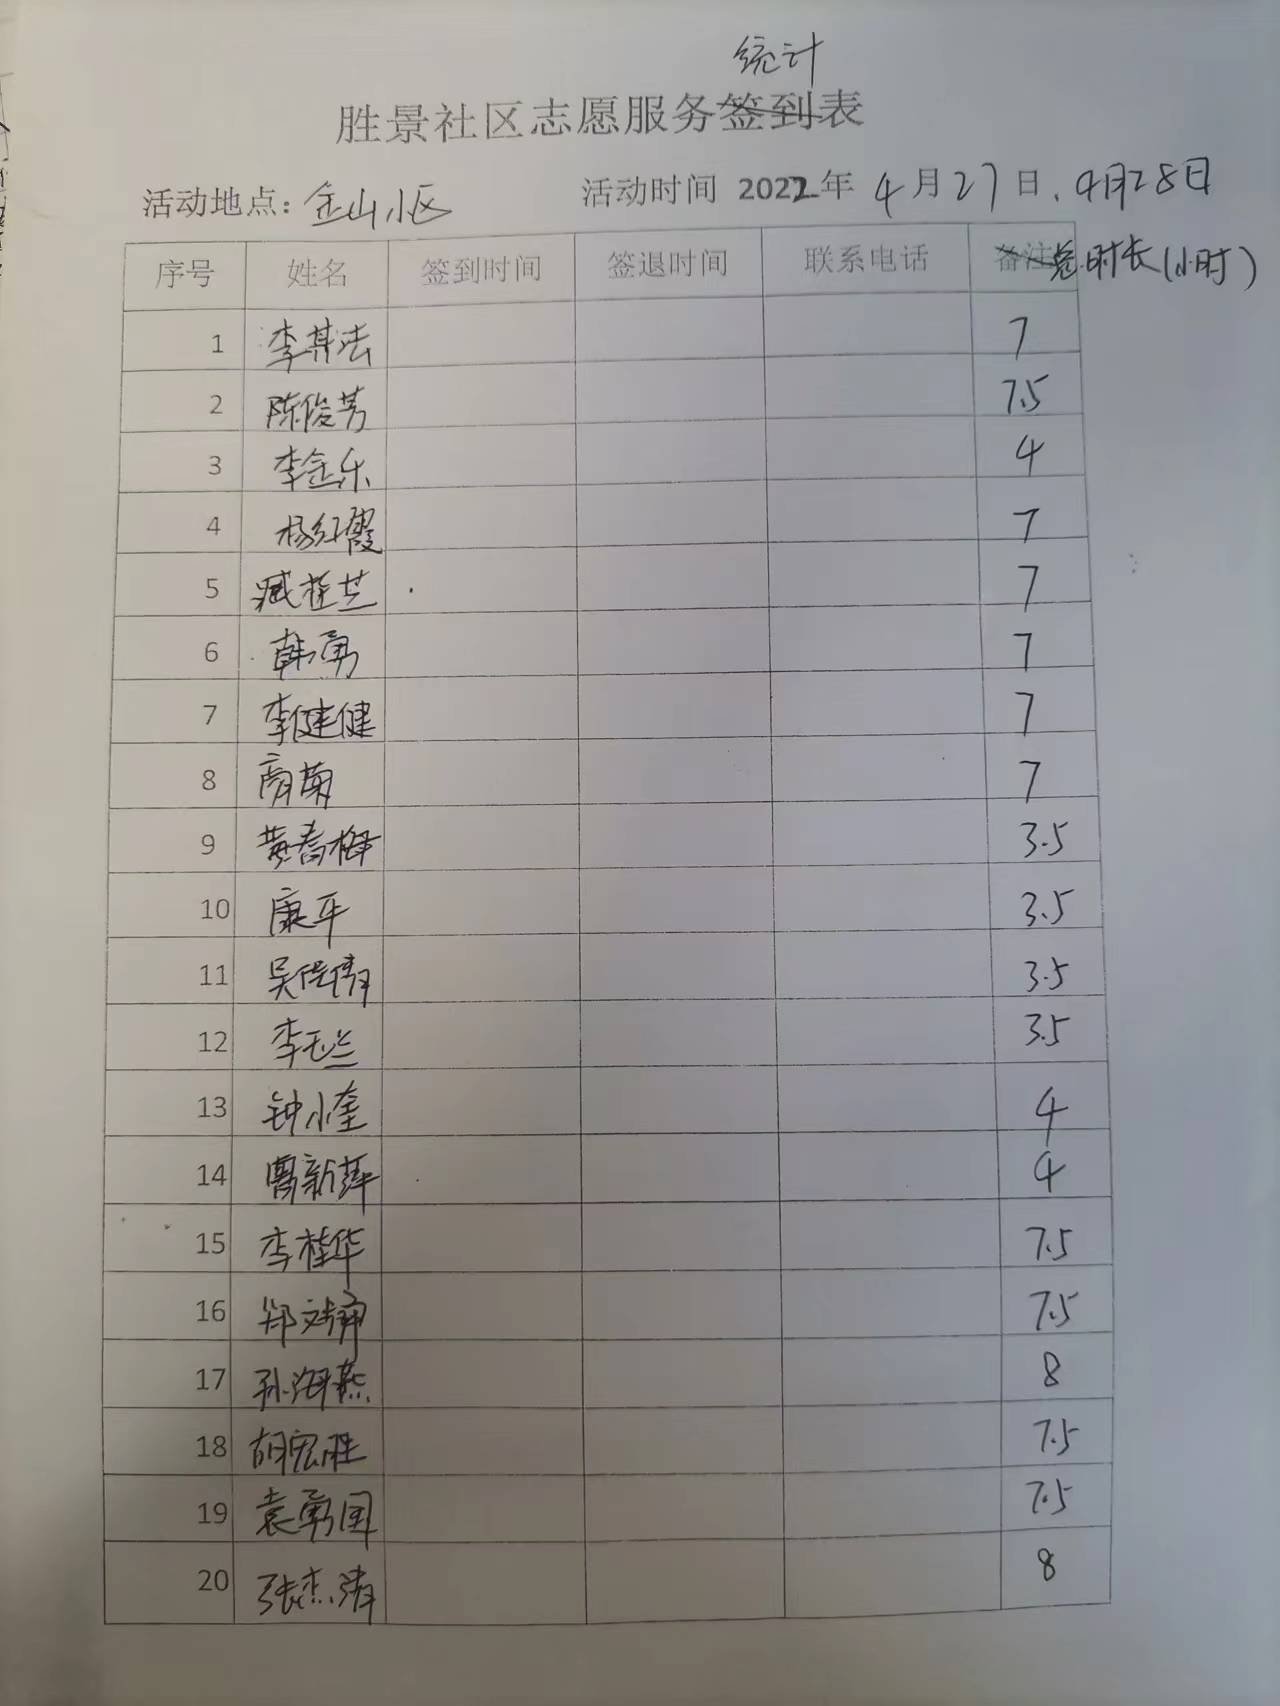 统计
胜景社区志愿服务签到表
活动地点：金山小区 活动时间 2022年 4月27日、4月28日
序号 姓名 签到时间 签退时间 联系电话 备注总时长(小时)
1 李其法 7
2 陈俊芳 7.5
3 李金乐 4
4 杨红霞 7
5 臧桂芝 7
6 韩勇 7
7 李健健 7
8 商菊 7
9 黄春梅 3.5
10 康平 3.5
11 吴倩 3.5
12 李玉兰 3.5
13 钟小奎 4
14 曹新萍 4
15 李桂华 7.5
16 郑文 7.5
17 孙海燕 8
18 胡宏胜 7.5
19 袁勇国 7.5
20 张杰涛 8